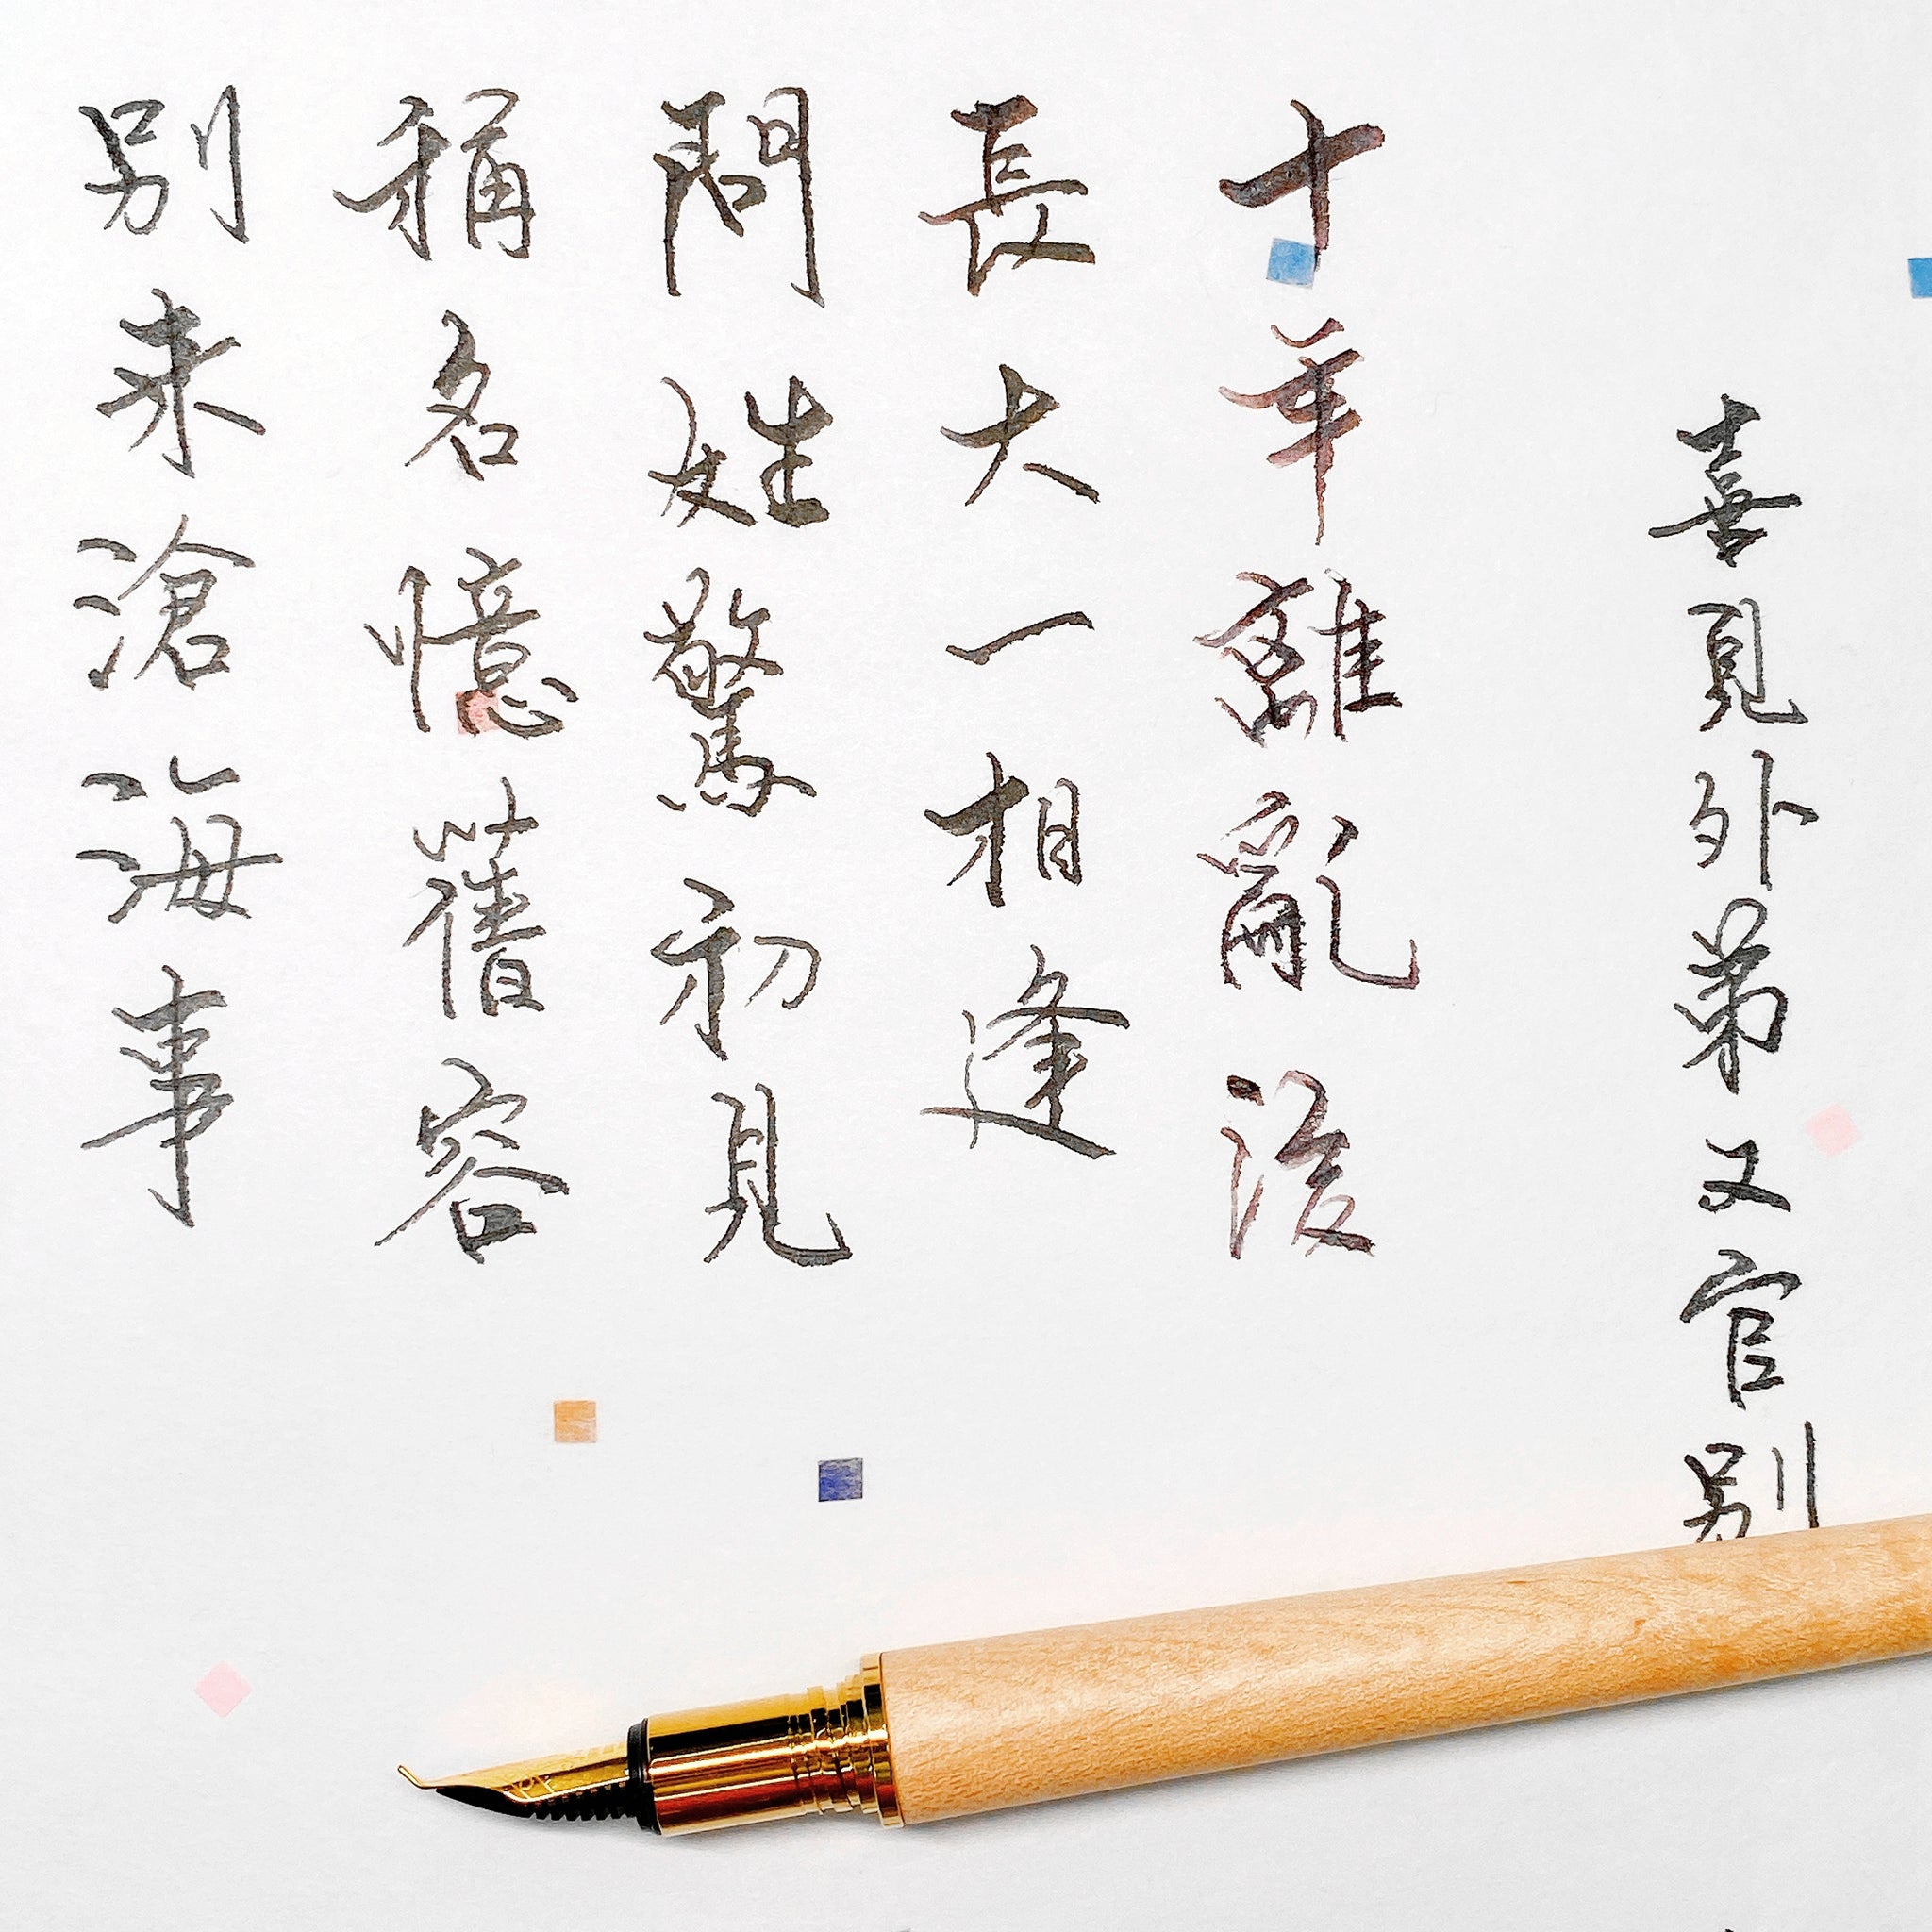 喜見外弟又官別
十年離亂後
長大一相逢
問姓驚初見
稱名憶舊容
別來滄海事